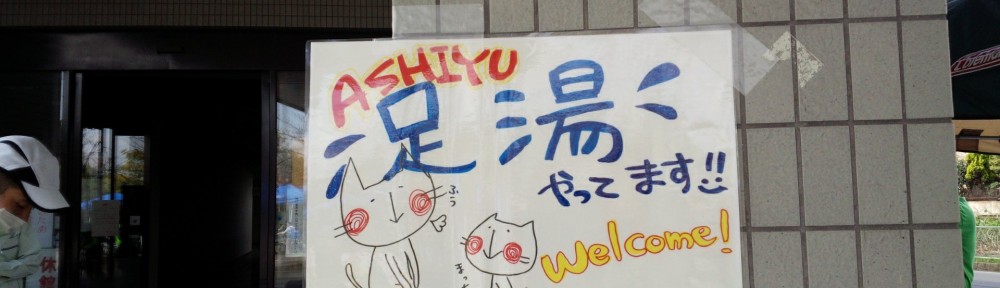 ASHIYU
足湯
やってます!!
ふぅ
Welcome!
休館